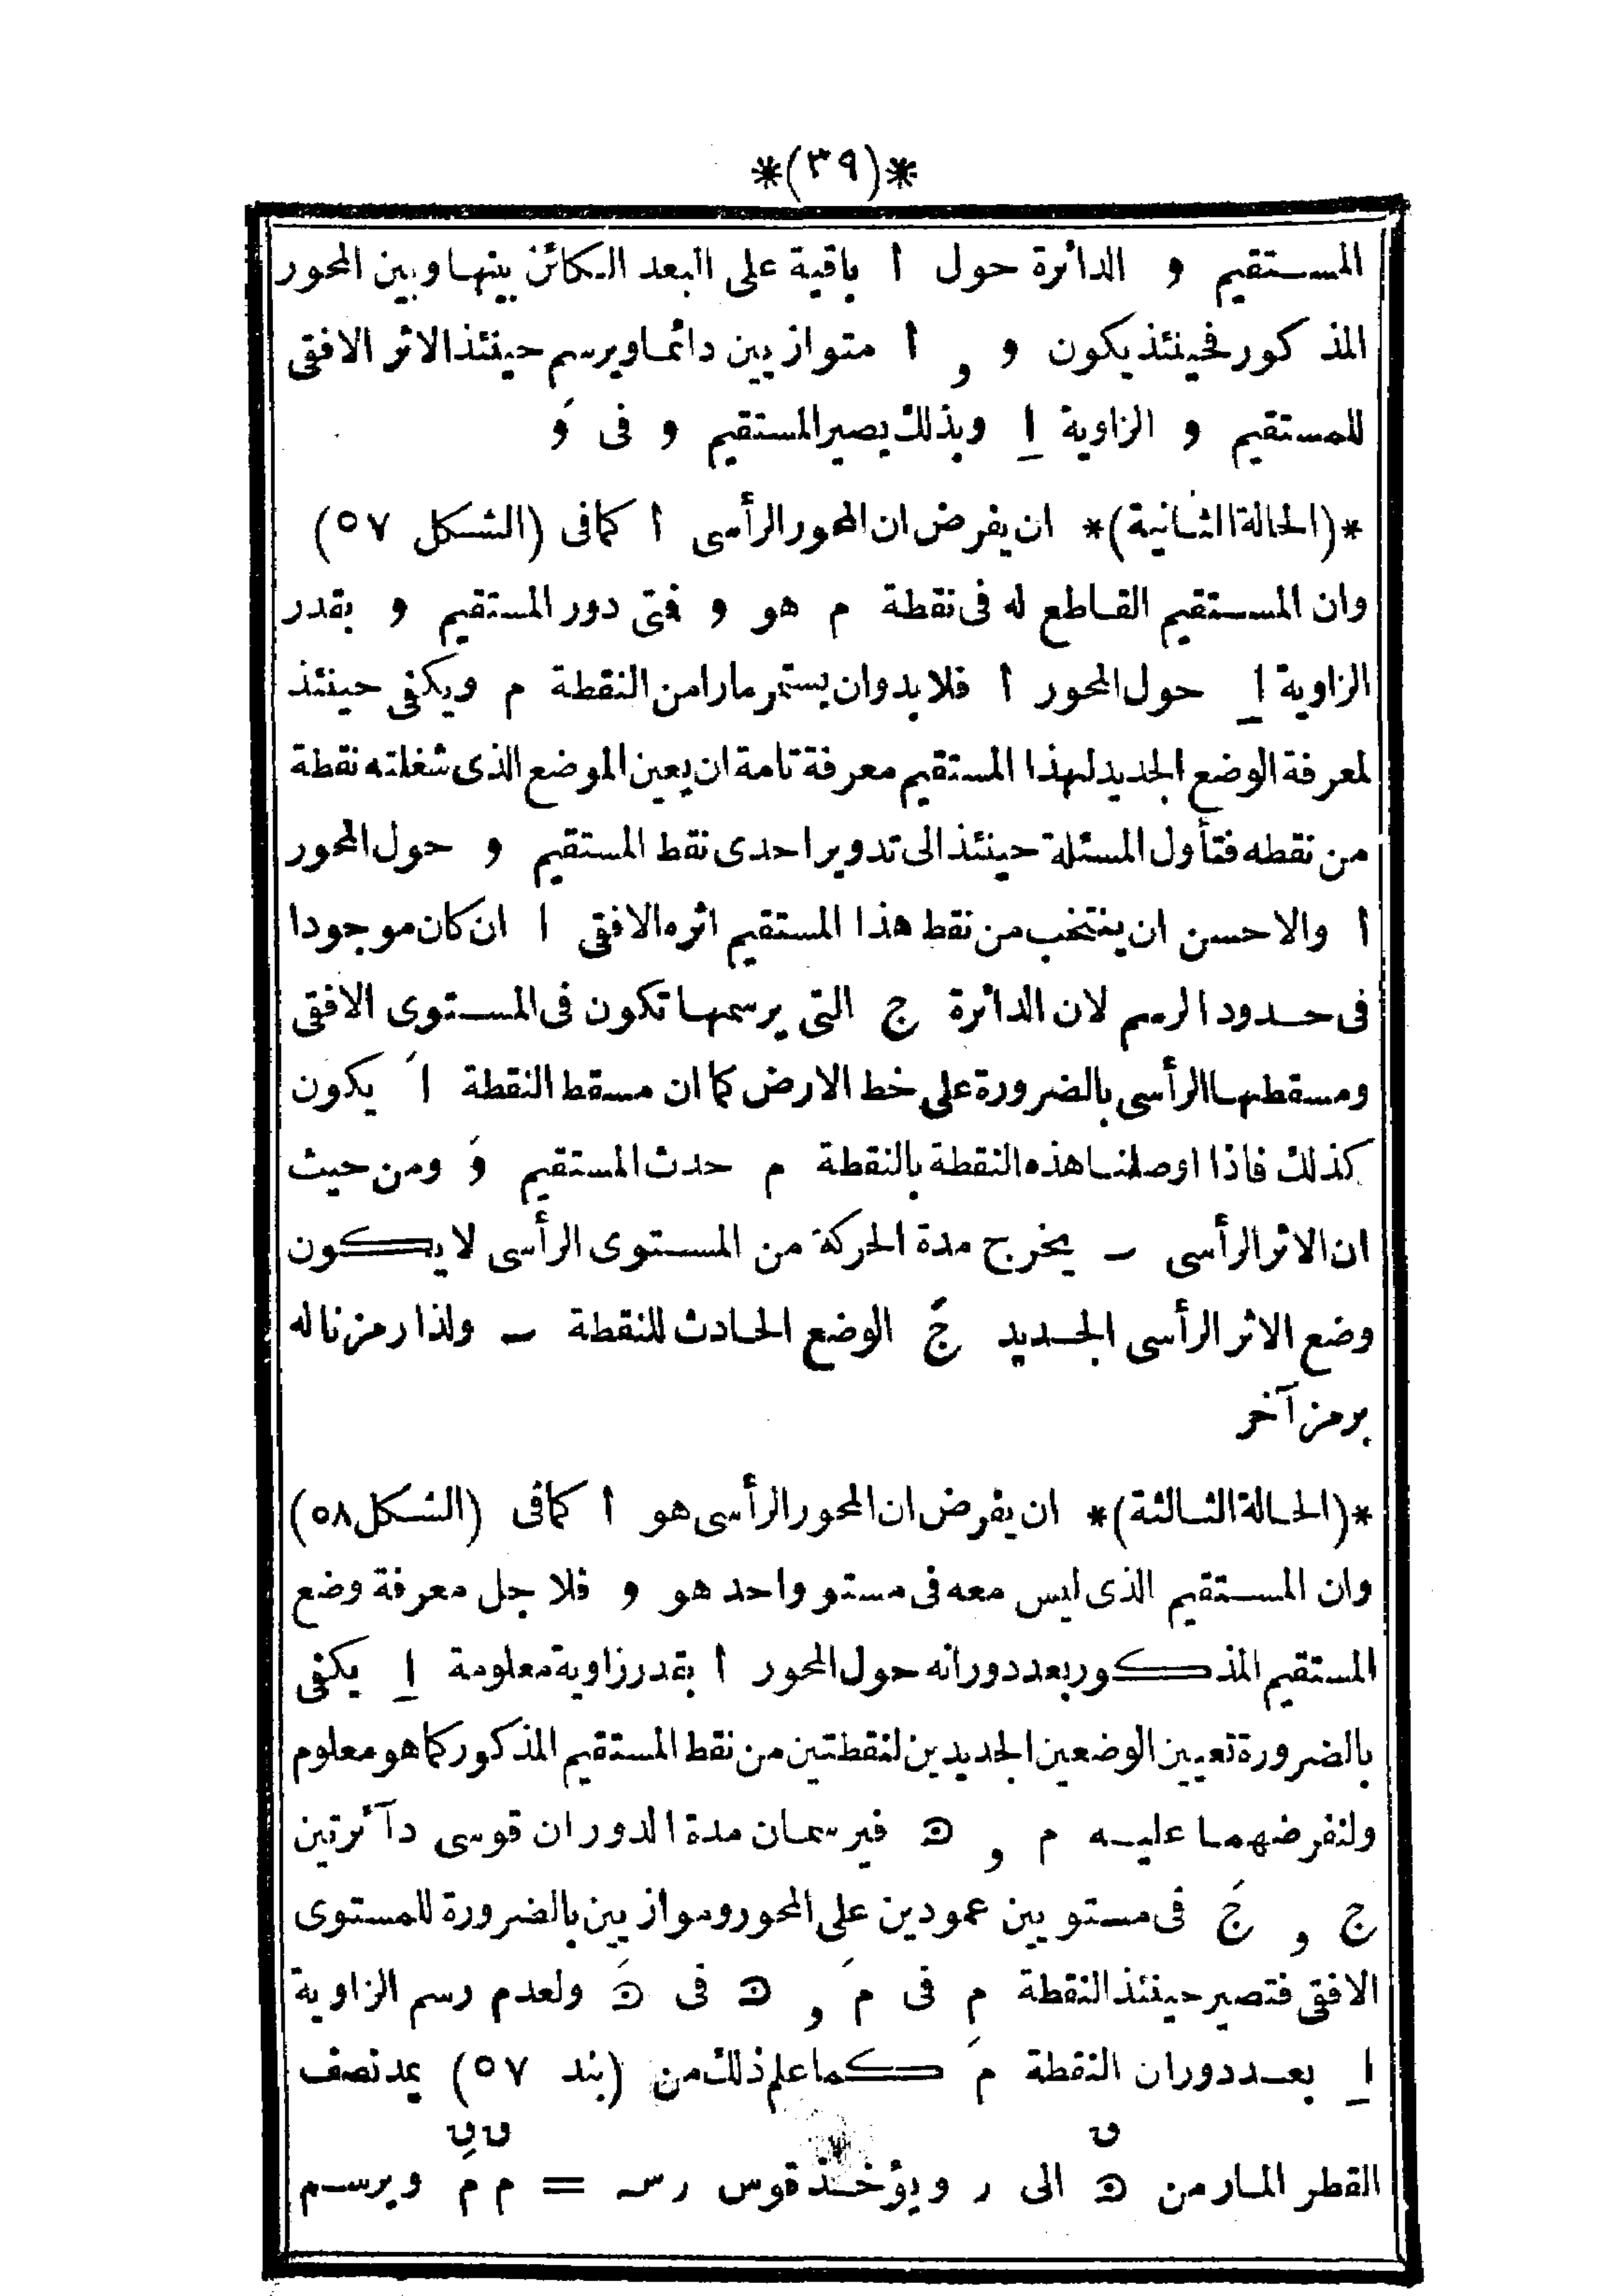 *(٣٩)*
المستقيم و الدائرة حول ا باقية على البعد الكائن بينها وبين المحور
المذكور فحينئذ يكون و و ا متوازيين دائما ويرسم حينئذ الاثر الافقى
للمستقيم و الزاوية ا وبذلك يصير المستقيم و فى وَ
*(الحالة الثانية)* ان يفرض ان المحور الرأسى ا كافى (الشكل ٥٧)
وان المستقيم القاطع له فى نقطة م هو و فتى دور المستقيم و بقدر
الزاوية ا حول المحور ا فلا بد وان يستمر مارا من النقطة م ويكفى حينئذ
لمعرفة الوضع الجديد لهذا المستقيم معرفة تامة ان يعين الموضع الذى شغلته نقطة
من نقطه فتأول المسئلة حينئذ الى تدوير احدى نقط المستقيم و حول المحور
ا والاحسن ان ينتخب من نقط هذا المستقيم اثره الافقى ا ان كان موجودا
فى حدود الرسم لان الدائرة ج التى يرسمها تكون فى المستوى الافقى
ومسقطها الرأسى بالضرورة على خط الارض كما ان مسقط النقطة اَ يكون
كذلك فاذا اوصلنا هذه النقطة بالنقطة م حدث المستقيم وَ ومن حيث
ان الاثر الرأسى ـ يخرج مدة الحركة من المستوى الرأسى لا يكون
وضع الاثر الرأسى الجديد جَ الوضع الحادث للنقطة ـ ولذا رمزنا له
برمز آخر
*(الحالة الثالثة)* ان يفرض ان المحور الرأسى هو ا كمافى (الشكل ٥٨)
وان المستقيم الذى ليس معه فى مستو واحد هو و فلاجل معرفة وضع
المستقيم المذكور بعد دورانه حول المحور ا بقدر زاوية معلومة ا يكفى
بالضرورة تعيين الوضعين الجديدين لنقطتين من نقط المستقيم المذكور كما هو معلوم
ولنفرضهما عليه م و ﻩ فيرسمان مدة الدوران قوسى دآئرتين
ج و جَ فى مستويين عمودين على المحور وموازيين بالضرورة للمستوى
الافقى فتصير حينئذ النقطة م فى مَ و ﻩ فى ﻩَ ولعدم رسم الزاوية
ا بعد دوران النقطة مَ كما علم ذلك من (بند ٥٧) يمد نصف
القطر المار من ﻩ الى ر ويؤخذ قوس رس = م مَ ويرسم